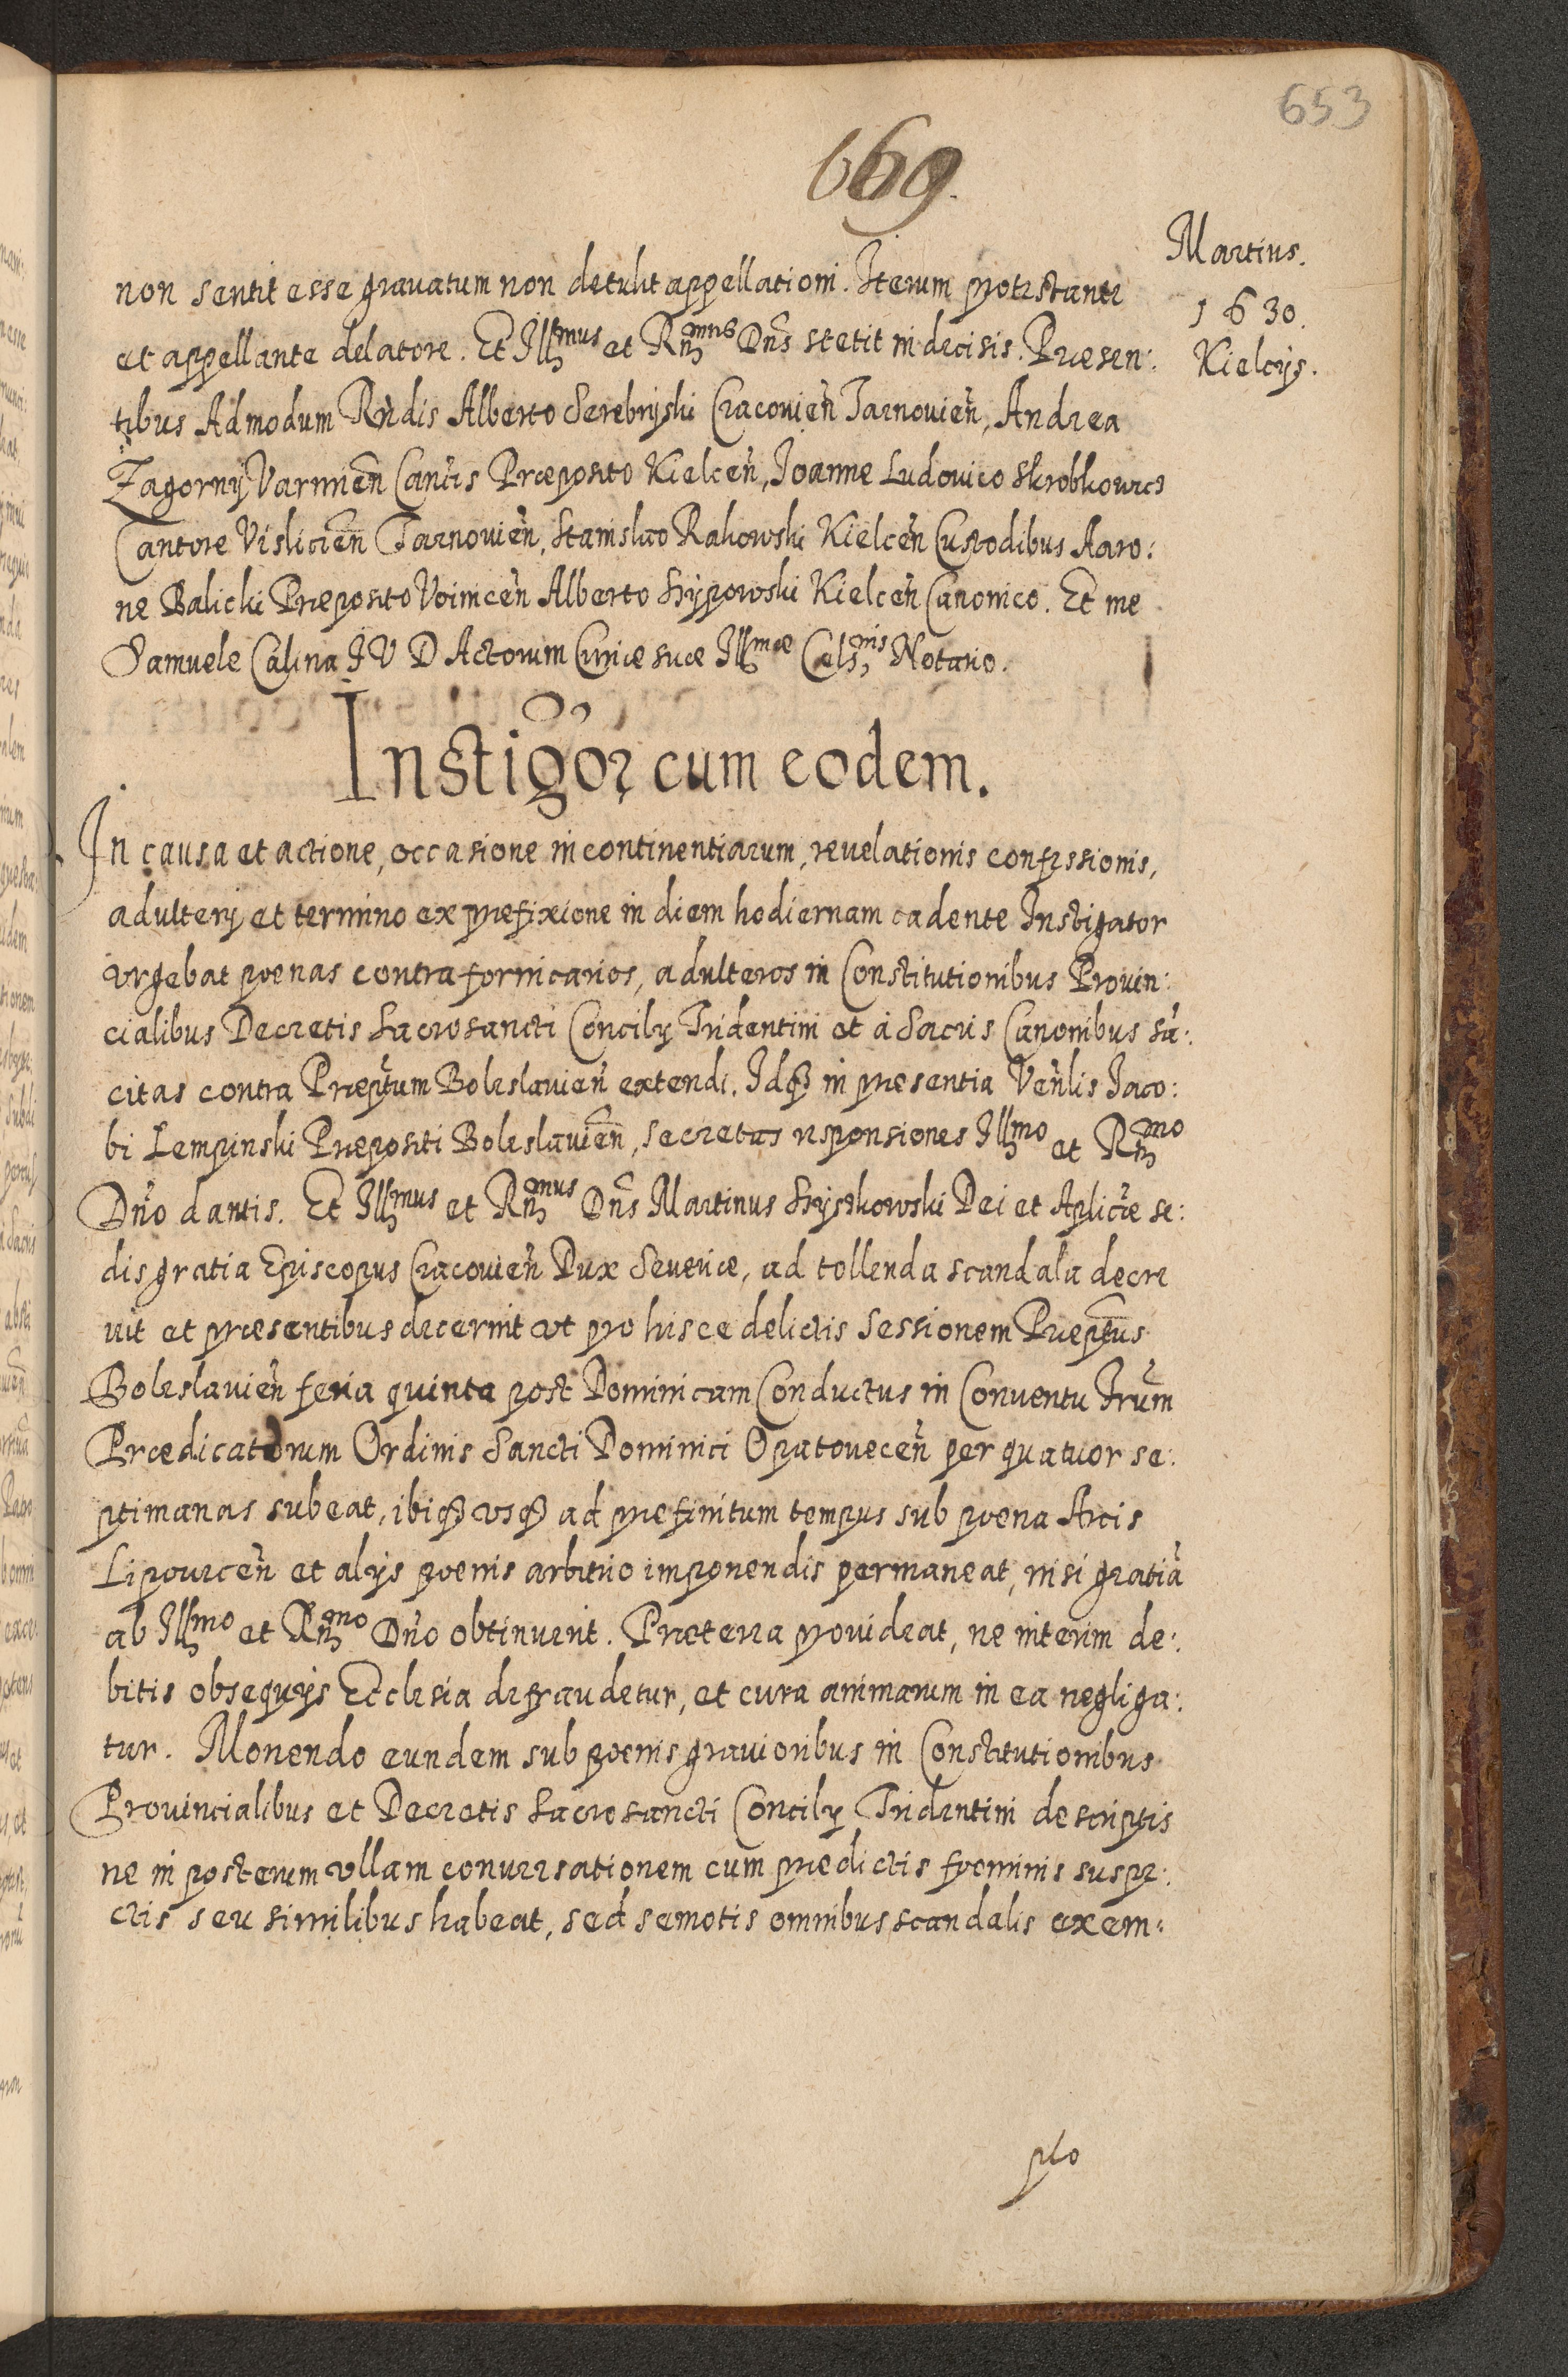 653
669.
Martius.
1630.
Kielcijs.
non sentit esse grauatum non detulit appellationi. Iterum protestante
et appellante delatore. Et Illmus et Rnmus Dns stetit in decisis. Præsen:
tibus Admodum Rndis Alberto Serebryski Cracouien Tarnouien, Andrea
Zagorny Varmien Cancis Præposito Kielcen, Ioanne Ludouico Skrobkowicz
Cantore Vislicien Tarnouien, Stanislao Rakowski Kielcen Custodibus Aaro:
ne Balicki Præposito Voinicen Alberto Lipowski Kielcen Canonico. Et me
Samuele Calina I V D Actorum Curiæ suæ Illmæ Celsnis Notario.
Instigor cum eodem.
In causa et actione, occasione incontinentiarum, reuelationis confessionis,
adulterij et termino ex præfixione in diem hodiernam cadente Instigator
vrgebat poenas contra fornicarios, adulteros in Constitutionibus Prouin:
cialibus Decretis Sacrosancti Concilij Tridentini et à Sacris Canonibus sã:
citas contra Præptum Boleslauien extendi. Idq3 in præsentia Venlis Iaco:
bi Lempinski Præpositi Boleslauien, secretas responsiones Illmo et Rnmo
Dno dantis. Et Illmus et Rnmus Dns Martinus Szyszkowski Dei et Aplicæ se:
dis gratia Episcopus Cracouien Dux Seueriæ, ad tollenda scandala decre
uit et præsentibus decernit vt pro hisce delictis sessionem Præptus
Boleslauien feria quinta post Dominicam Conductus in Conuentu Frum
Prædicatorum Ordinis Sancti Dominici Opatouecen per quatuor se:
ptimanas subeat, ibiq3 vsq3 ad præfinitum tempus sub poena Arcis
Lipouicen et alijs poenis arbitrio imponendis permaneat, nisi gratiã
ab Illmo et Rnmo Dno obtinuerit. Præterea prouideat, ne interim de:
bitis obsequijs Ecclesia defraudetur, et cura animarum in ea negliga:
tur. Monendo eundem sub poenis grauioribus in Constitutionibus
Prouincialibus et Decretis Sacrosancti Concilij Tridentini descriptis
ne in posterum vllam conuersationem cum prædictis foeminis suspe:
ctis seu similibus habeat, sed semotis omnibus scandalis exem:
plo